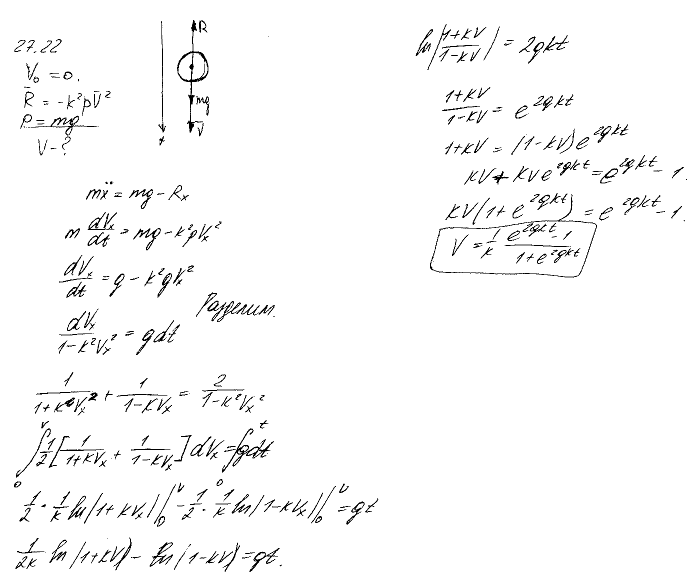 27.22
V₀ = 0.
R̄ = -k²pV̄²
P = mg
V - ?
R
mg
V̄
x
mẍ = mg - Rₓ
m dVₓ/dt = mg - k²pVₓ²
dVₓ/dt = g - k²gVₓ²
Разделим.
dVₓ/(1-k²Vₓ²) = gdt
1/(1+kVₓ) + 1/(1-kVₓ) = 2/(1-k²Vₓ²)
∫₀ᵛ ½[1/(1+kVₓ) + 1/(1-kVₓ)]dVₓ = ∫₀ᵗ gdt
½ · 1/k ln|1+kVₓ||₀ᵛ - ½ · 1/k ln|1-kVₓ||₀ᵛ = gt
1/2k ln|1+kV| - ln|1-kV| = gt.
ln|(1+kV)/(1-kV)| = 2gkt
(1+kV)/(1-kV) = e^(2gkt)
1+kV = (1-kV)e^(2gkt)
kV + kVe^(2gkt) = e^(2gkt) - 1.
kV(1+e^(2gkt)) = e^(2gkt) - 1.
V = 1/k (e^(2gkt) - 1)/(1+e^(2gkt))